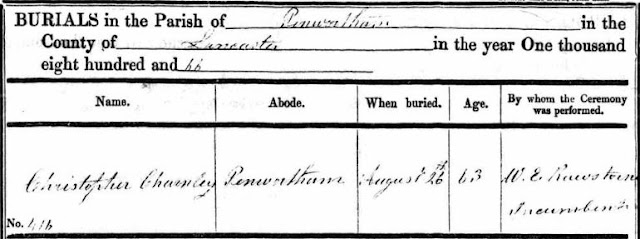 BURIALS in the Parish of Penwortham in the
County of Lancaster in the year One thousand
eight hundred and 66
Name. Abode. When buried. Age. By whom the Ceremony was performed.
Christopher Charnley Penwortham August 26th 63 W. E. Rawstorne
Incumbent
No. 416